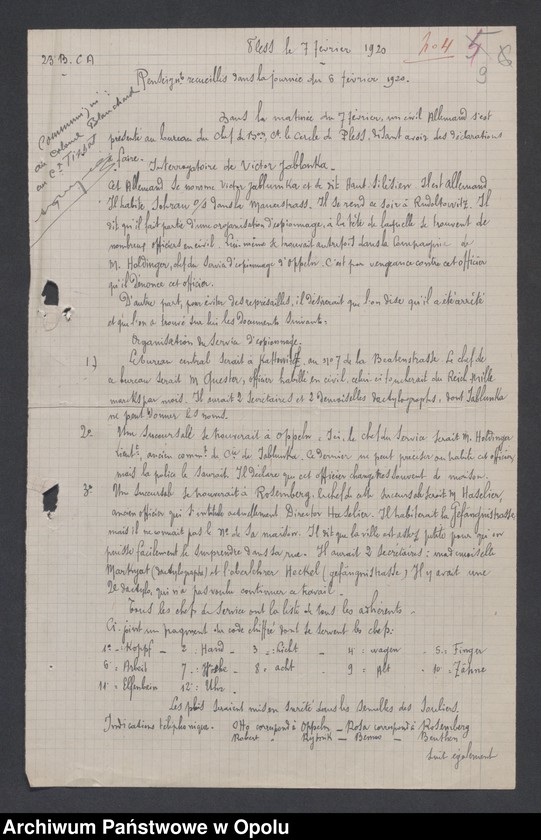 Pless le 7 février 1920
23 B.C.A
204
5
6
9
Renseignts recueillis dans la journée du 6 février 1920.
Communiqué :
au Colonel Blanchard
au Ct Tissot
Dans la matinée du 7 février, un civil Allemand s'est
présenté au bureau du chef de Bon, Ct le Cercle de Pless, disant avoir des déclarations
à faire.
Interrogatoire de Victor Jablonka.
Cet Allemand se nomme Victor Jablunka et se dit Haut Silésien. Il est allemand
Il habite Sohrau o/s dans la Mauerstrasse. Il se rend ce soir à Rudoltowitz. Il
dit qu'il fait partie d'une organisation d'espionnage, à la tête de laquelle se trouvent de
nombreux officiers en civil. Lui-même se trouvait autrefois dans la Compagnie de
M. Holdinger, chef du Service d'espionnage d'Oppeln. C'est par vengeance contre cet officier
qu'il dénonce cet officier.
D'autre part, pour éviter des représailles, il désirerait que l'on dise qu'il a été arrêté
et que l'on a trouvé sur lui les documents suivants.
Organisation du Service d'espionnage.
1) Le bureau central serait à Kattowitz, au No 7 de la Beatestrasse. Le chef de
ce bureau serait M. Quester, officier habillé en civil, celui-ci toucherait du Reich mille
marks par mois. Il aurait 2 secrétaires et 2 demoiselles dactylographes, dont Jablunka
ne peut donner les noms.
2o Une succursale se trouverait à Oppeln. Ici, le chef du Service serait M. Holdinger
lieutt, ancien commt de Cie de Jablunka. Ce dernier ne peut préciser où habite cet officier
mais la police le saurait. Il déclare que cet officier change très souvent de maison.
3o Une succursale se trouverait à Rosenberg. Le chef de cette succursale serait M. Haselier,
ancien officier qui s'intitule actuellement Director Haselier. Il habiterait la Gefängnisstrasse
mais il ne connait pas le No de sa maison. Il dit que la ville est assez petite pour qu'on
puisse facilement le surprendre dans sa rue. Il aurait 2 secrétaires : mademoiselle
Markujat (dactylographe) et l'oberlehrer Heckel (gefängnisstrasse) Il y avait une
2e dactylo, qui n'a pas voulu continuer ce travail.
Tous les chefs du Service ont la liste de tous les adhérents.
Ci-joint un fragment du code chiffré dont se servent les chefs :
1o - Kopff - 2 - Hand - 3 - Licht - 4 : wagen - 5 : Finger
6 : Arbeit 7 - 8 : acht - 9 : Alt - 10 : Zähne
11 : Elfenbein 12 : Uhr.
Les plis seraient mis en sureté dans les semelles des souliers.
Indications téléphoniques. Otto correspond à Oppeln - Rosa correspond à Rosenberg
Robert " Rybnik - Benno - Beuthen
Suit également
Archiwum Państwowe w Opolu